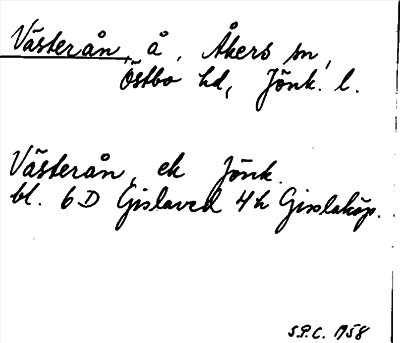 Västerån, å, Åkers sn,
Östbo hd, Jönk. l.
Västerån, ek Jönk.
bl. 6D Gislaved 4h Gisslaköp.
S.P.C. 1958